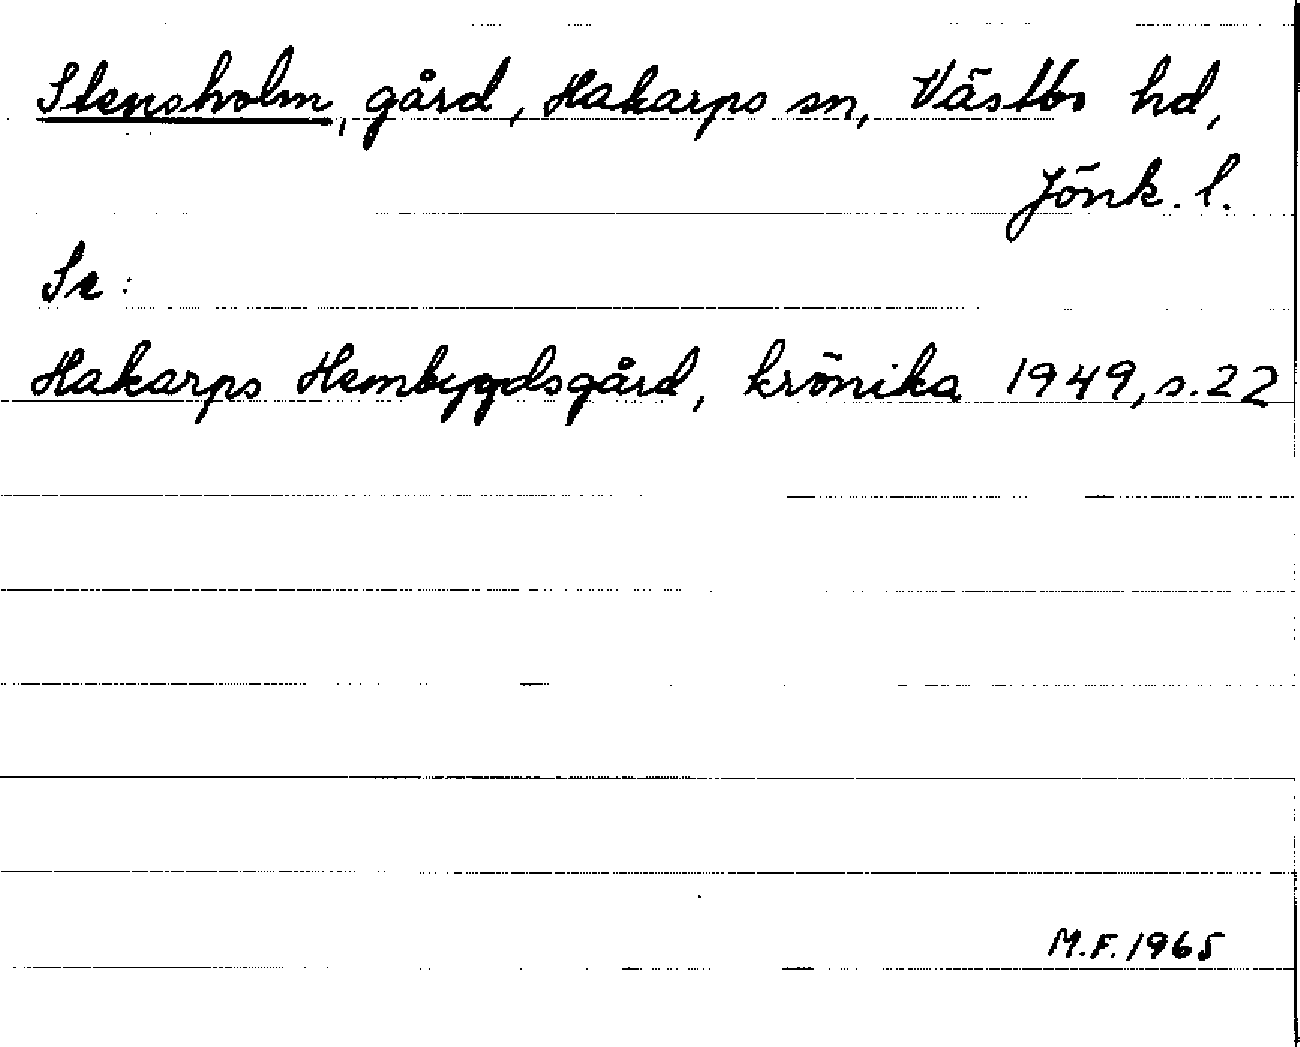 Stensholm, gård, Hakarps sn, Västbo hd,
Jönk. l.
Se:
Hakarps Hembygdsgård, krönika 1949, s. 22
M.F. 1965